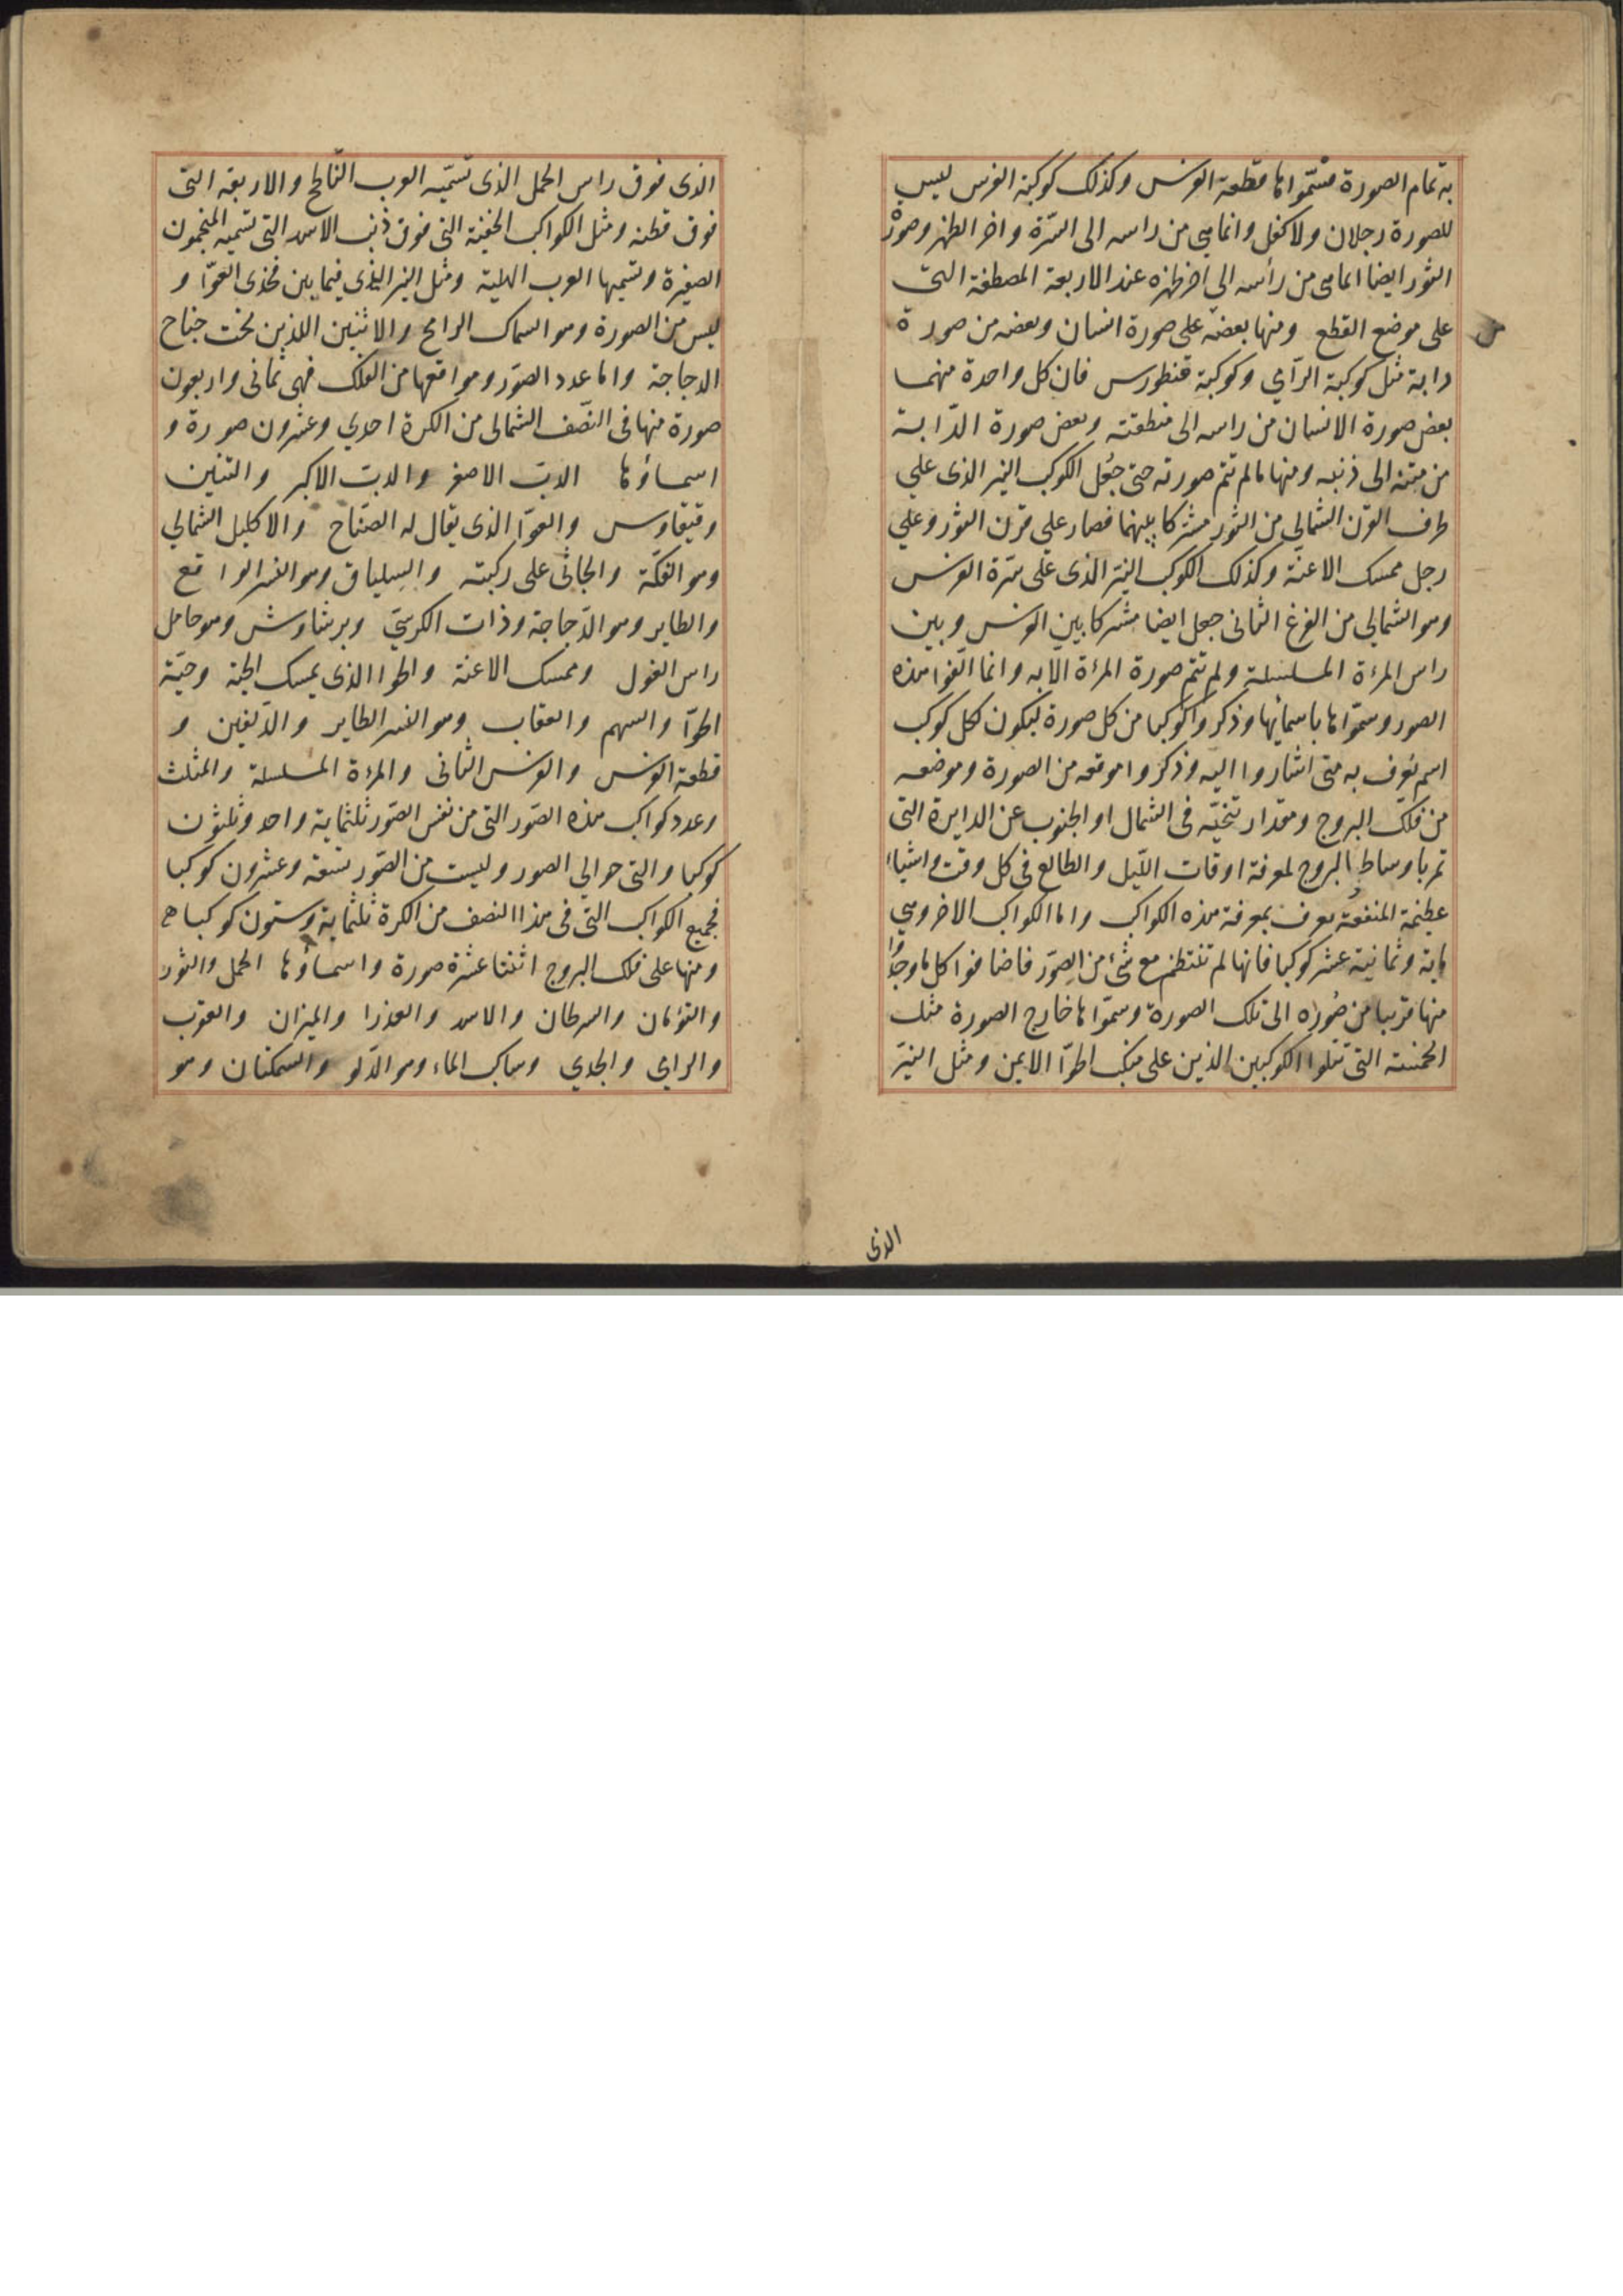 به تمام الصورة فسمّوها قطعة الفرس وكذلك كوكبة الفرس ليس
للصورة رجلان ولا كفل وانما هى من راسه الى السّرّة واخر الظهر وصورة
الثور ايضا انما هى من رأسه الى اخر ظهره عند الاربعة المصطفة التى
على موضع القطع ومنها بعضه على صورة انسان وبعضه من صورة
دابة مثل كوكبة الرّامي وكوكبة قنطورس فان كل واحدة منهما
بعض صورة الانسان من راسه الى منطقته وبعض صورة الدّابة
من متنه الى ذنبه ومنها ما لم تتم صورته حتى جُعل الكوكب النير الذى علي
طرف القرن الشمالي من الثور مشتركا بينهما فصار علي قرن الثور وعلي
رجل ممسك الاعنّة وكذلك الكوكب النيّر الذى على سُرّة الفرس
وهو الشمالي من الفرغ الثانى جعل ايضا مشتركا بين الفرس وبين
راس المرءة المسلسلة ولم تتم صورة المرءة الا به وانما الّفوا هذه
الصور وسمّوها باسمائها وذكروا كوكبا من كل صورة ليكون لكل كوكب
اسم يُعرف به متى اشاروا اليه وذكروا موقعه من الصورة وموضعه
من فلك البروج ومقدار تنحّيه فى الشمال او الجنوب عن الدايرة التى
تمر باوساط البروج لمعرفة اوقات اللّيل والطالع فى كل وقت واشياء
عظيمة المنفعة يعرف بمعرفة هذه الكواكب واما الكواكب الاخر وهي
ماية وثمانية عشر كوكبا فانها لم تنتظم مع شئ من الصِوَر فاضافوا كل ما وجدُوا
منها قريبا من صُورَه الى تلك الصورة وسمّوها خارج الصورة مثل
الخمسة التى تتلوا الكوكبين الذين على منكب الحوّا الايمن ومثل النيّر
الذى
الذى فوق راس الحمل الذى تسمّيه العرب النّاطح والاربعة التى
فوق قطنه ومثل الكواكب الخفيّة التى فوق ذنب الاسد التى تسميه المنجمون
الضفيرة وتسميها العرب الهلبة ومثل النير الذى فيما بين فخذى العوّا و
ليس من الصورة وهو السماك الرامح والاثنين اللذين تحت جناح
الدجاجة واما عدد الصوَر ومواقعها من الفلك فهى ثمانى واربعون
صورة منها فى النّصف الشمالى من الكرة احدي وعشرون صورة و
اسماؤها الدبّ الاصغر والدبّ الاكبر والتنين
وقيقاوس والعوّا الذى يقال له الصّيّاح والاكليل الشمالي
وهو الفكّة والجاثى على ركبته والسِلياق وهو النسر الواقع
والطاير وهو الدّجاجة وذات الكرسيّ وبرشاوش وهو حامل
راس الغول وممسك الاعنة والحوا الذى يمسك الحية وحيّة
الحوّا والسهم والعقاب وهو النسر الطاير والدّلفين و
قطعة الفرس والفرس الثانى والمرءة المسلسلة والمثلث
وعدد كواكب هذه الصّور التى من نفس الصّور ثلثماية واحد وثلثون
كوكبا والتى حوالي الصور وليست من الصّور تسعة وعشرون كوكبا
فجميع الكواكب التى فى هذا النصف من الكرة ثلثماية وستون كوكبا
ومنها على فلك البروج اثنتا عشرة صورة واسماؤها الحمل والثور
والتؤمان والسرطان والاسد والعذرا والميزان والعقرب
والرامي والجدي وساكب الماء وهو الدّلو والسمكتان وهو